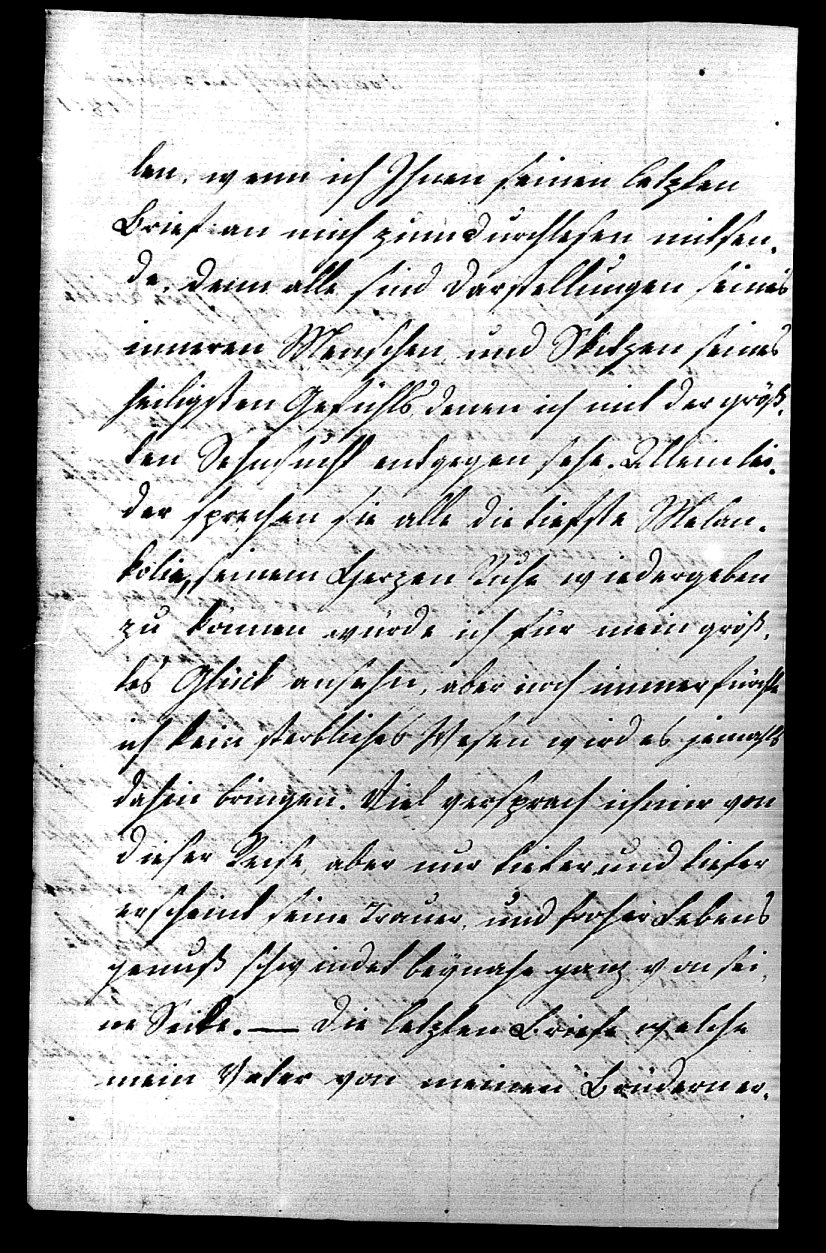 len, wenn ich Ihnen seinen letzten
Brief an mich zum Durchlesen mitsen-
de, denn alle sind Darstellungen seines
inneren Menschen und Skitzen seines
heiligsten Gefühls denen ich mit der größ-
ten Sehnsucht entgegen sehe. Allein lei-
der sprechen sie alle die tiefste Melan-
kolie, seinem Herzen Ruhe wiedergeben
zu können würde ich für mein größ-
tes Glück ansehn, aber noch immer fürchte
ich kein sterbliches Wesen wird es jemahls
dahin bringen. Viel versprach ich mir von
dieser Reise, aber nur tiefer und tiefer
erscheint seine Trauer, und froher Lebens
genuß schwindet beynahe ganz von sei-
ne Seite. — Die letzten Briefe welche
mein Vater von meinen Brüdern er-